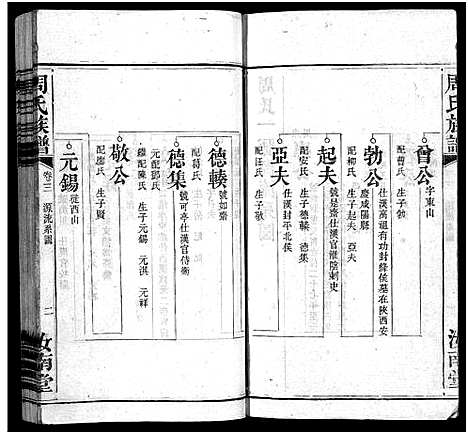 周氏族譜
曾公 字東山
配曹氏 生子勃
勃公 仕漢高祖有功封絳侯墓在陝西安
慶咸陽縣
配柳氏 生子起夫 亞夫
起夫 號如泉仕漢官淮陰刺史
配安氏 生子德輳 德集
亞夫 仕漢封平北侯
配汪氏 生子敬
德輳 號如齋
配葛氏
德集 號可亭仕漢官侍衛
元配鄧氏
繼配陳氏 生子元錫 元淇 元祥
敬公
配廖氏 生子賢
元錫 從西山
周氏族譜
卷三 源流系圖
二
汝南堂
汝南堂